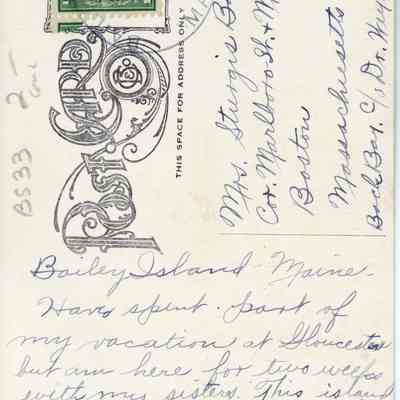 POST CARD
THIS SPACE FOR ADDRESS ONLY
BS33
2-
Mrs. Sturgis
Cor. Marlboro St. &
Boston
Massachusetts
Back Bay. c/o Dr.
Bailey Island - Maine -
Have spent part of
my vacation at Gloucester
but am here for two weeks
with my sisters. This island